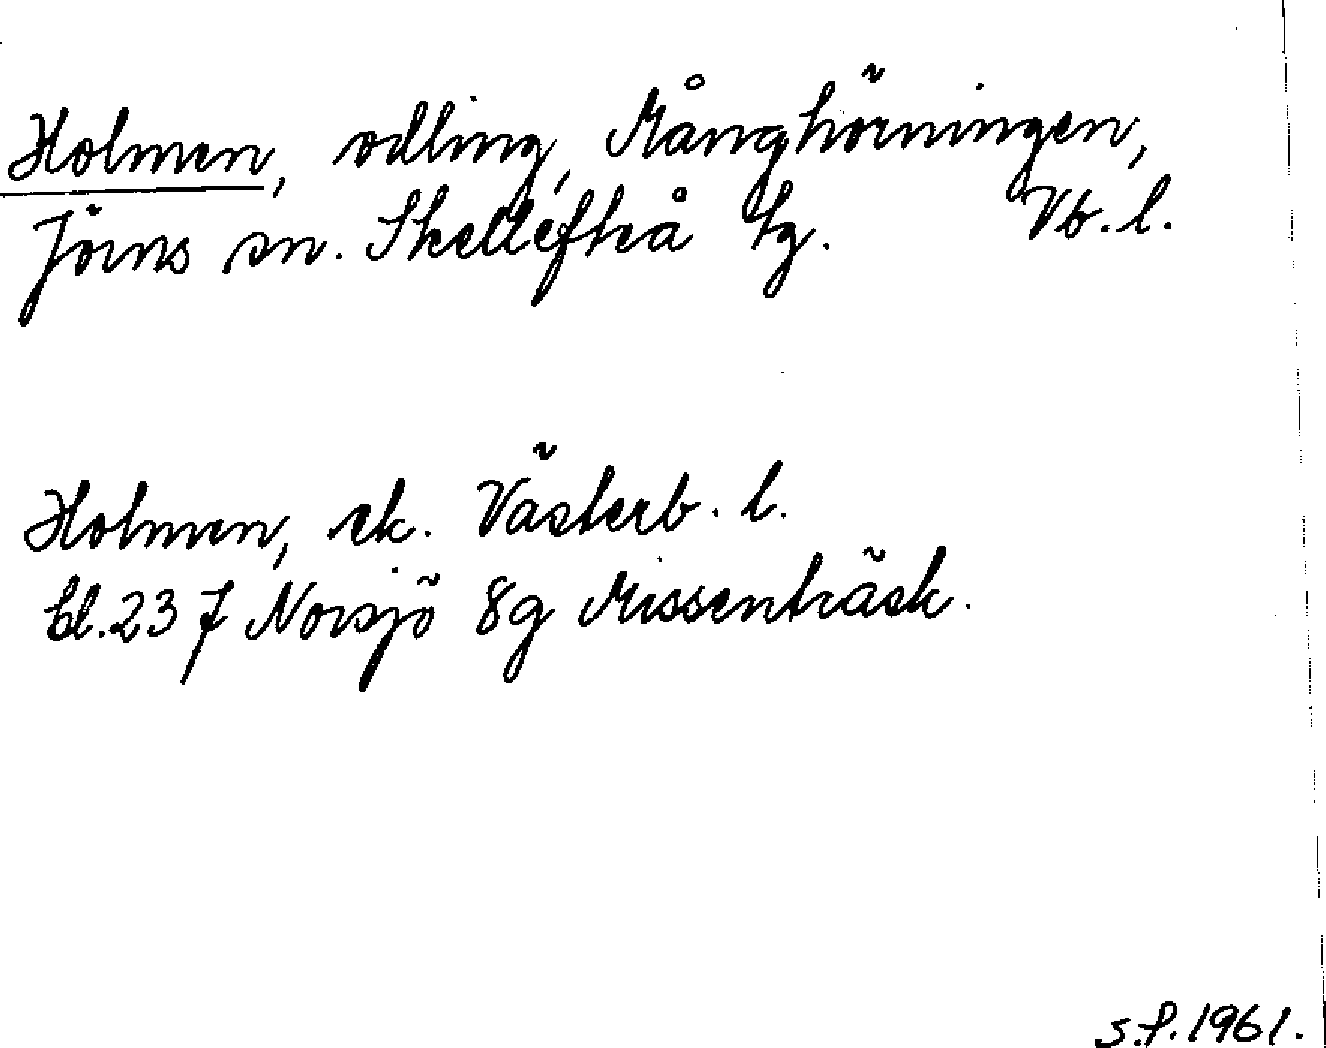 Holmen, odling, Månghörningen,
Jörns sn. Skellefteå tg. Vb. l.
Holmen, ek. Västerb. l.
bl. 237 Norsjö 8g Missenträsk.
S.P. 1961.